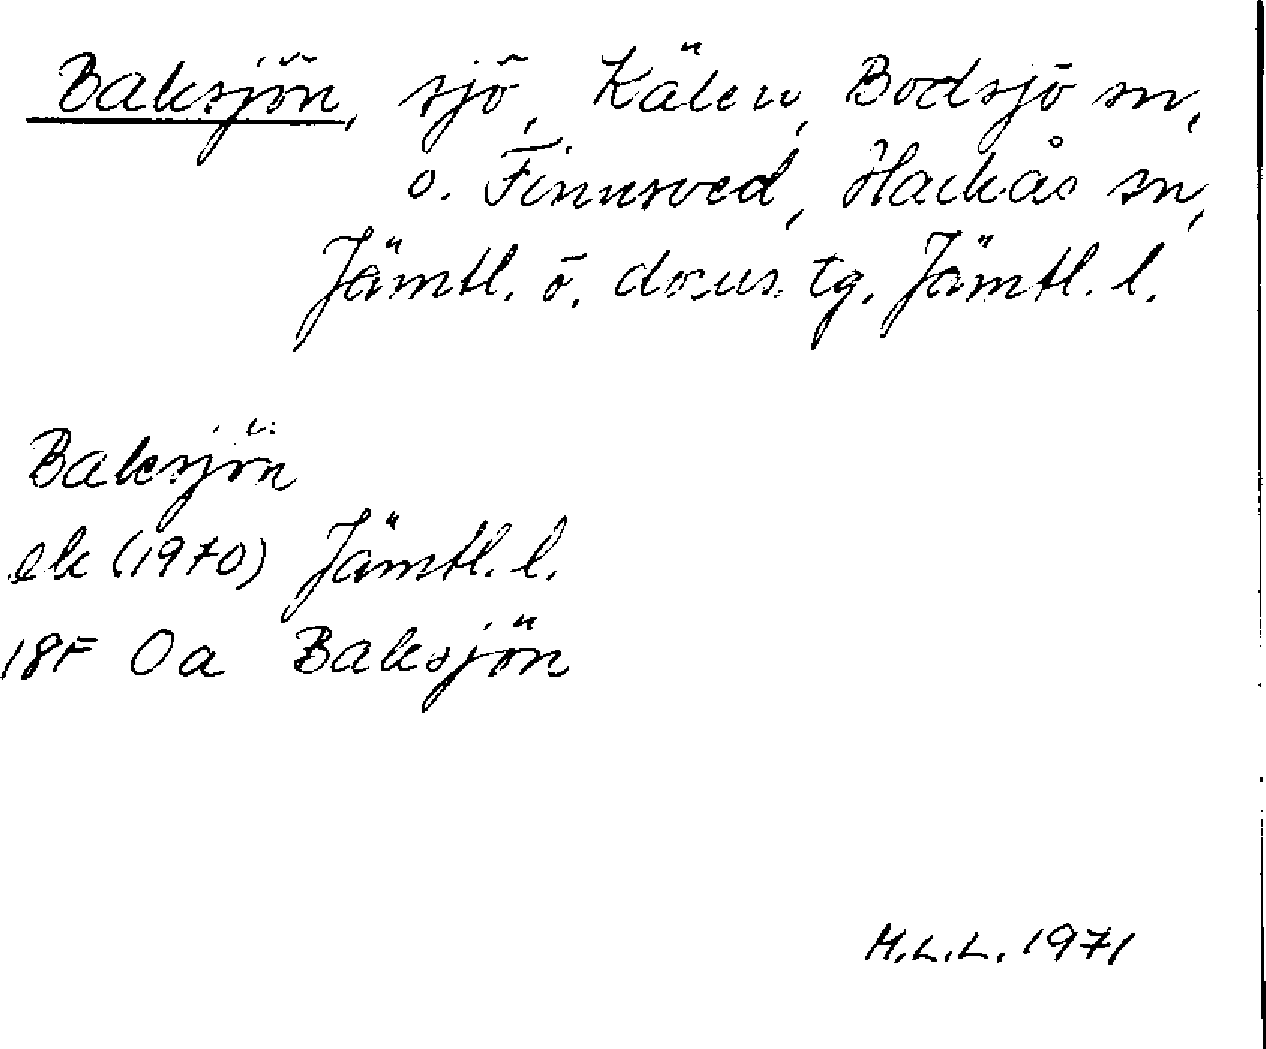 Baksjön, sjö, Kälen, Bodsjö sn,
o. Finnsved, Hackås sn,
Jämtl. ö. doms. tg. Jämtl. l.
Baksjön
ek (1970) Jämtl. l.
18F 0a Baksjön
M.L.L. 1971